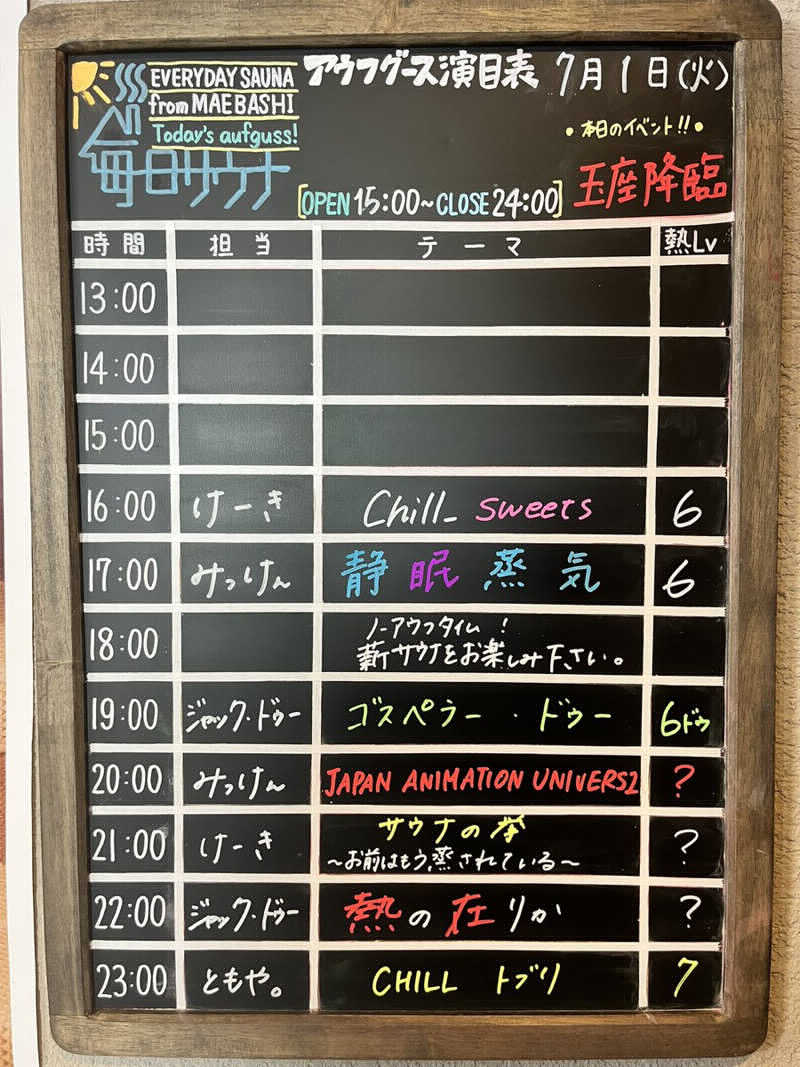 アウフグース演目表 7月1日(火)
EVERYDAY SAUNA
from MAEBASHI
Today's aufguss!
毎日サウナ
•本日のイベント!!•
玉座降臨
[OPEN 15:00~CLOSE 24:00]
時間 担当 テーマ 熱Lv
13:00
14:00
15:00
16:00 けーき Chill_ sweets 6
17:00 みっけん 静眠蒸気 6
18:00 ノーアウフタイム!
薪サウナをお楽しみ下さい。
19:00 ジャック・ドゥー ゴスペラー・ドゥー 6ドゥ
20:00 みっけん JAPAN ANIMATION UNIVERS2 ?
21:00 けーき サウナの拳 ?
~お前はもう、蒸されている~
22:00 ジャック・ドゥー 熱の在りか ?
23:00 ともや。 CHILL トブリ 7